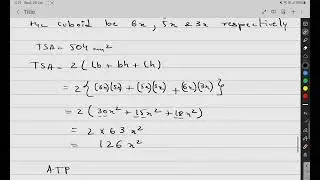 Title
the cuboid be 6x, 5x & 3x respectively
TSA = 504 cm²
TSA = 2(lb + bh + lh)
= 2{(6x)(5x) + (5x)(3x) + (6x)(3x)}
= 2(30x² + 15x² + 18x²)
= 2 × 63x²
= 126x²
ATP